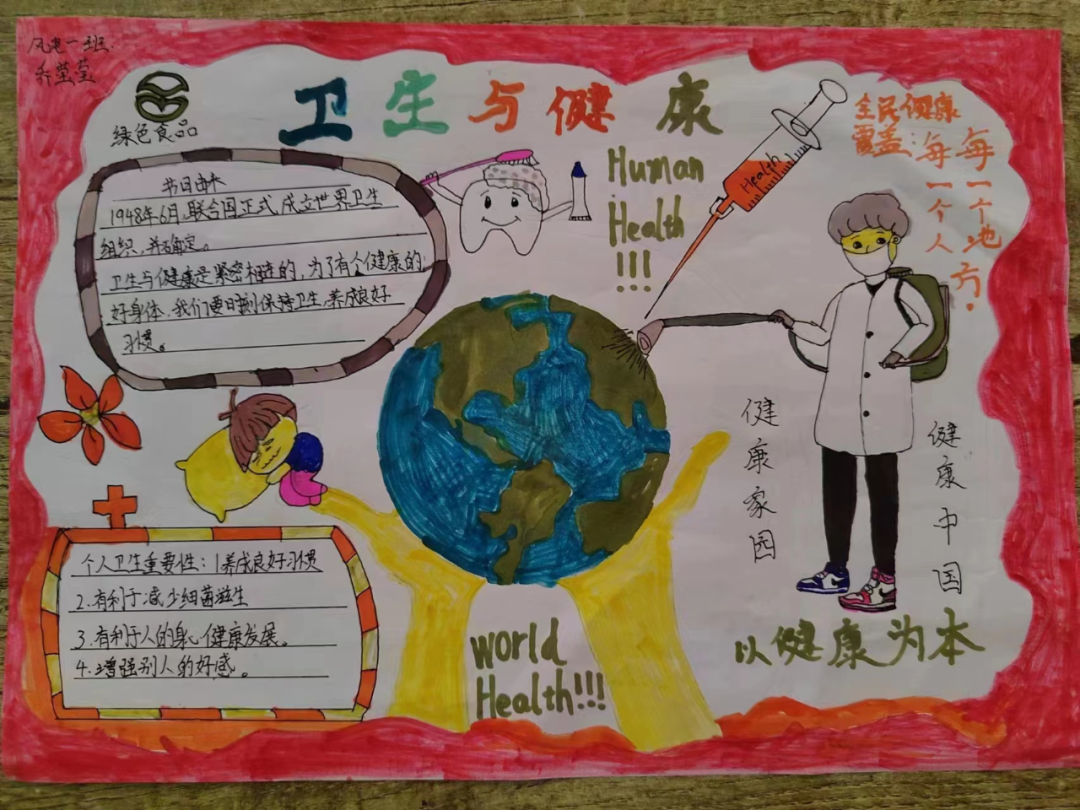 风电一班
乔莹莹
绿色食品
卫生与健康
Human
Health
!!!
Health
全民健康
覆盖:每一个人
每一个地方.
节日由来
1948年6月,联合国正式成立世界卫生
组织,并确定。
卫生与健康是紧密相连的,为了有个健康的
好身体,我们要时刻保持卫生,养成良好
习惯。
健康家园
健康中国
个人卫生重要性:1养成良好习惯
2.有利于减少细菌滋生
3.有利于人的身心健康发展。
4.增强别人的好感。
world
Health!!!
以健康为本